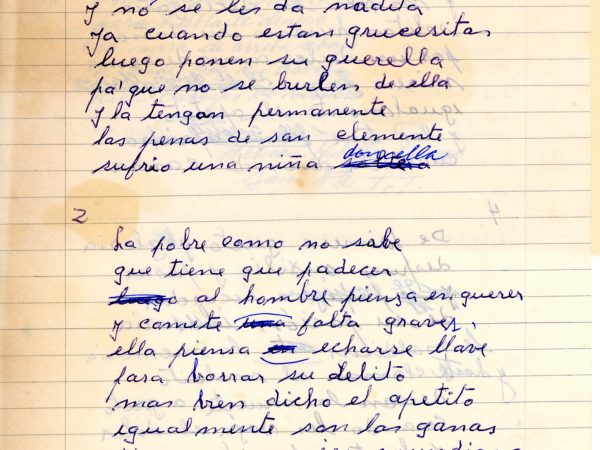 y no se les da nadita
Ya cuando estan grucesitas
luego ponen su querella
pa' que no se burlen de ella
y la tengan permanente
las penas de san clemente
sufrio una niña doncella
2
La pobre como no sabe
que tiene que padecer
luego al hombre piensa en querer
y comete una falta graves,
ella piensa en echarse llave
para borrar su delito
mas bien dicho el apetito
igualmente son las ganas
4